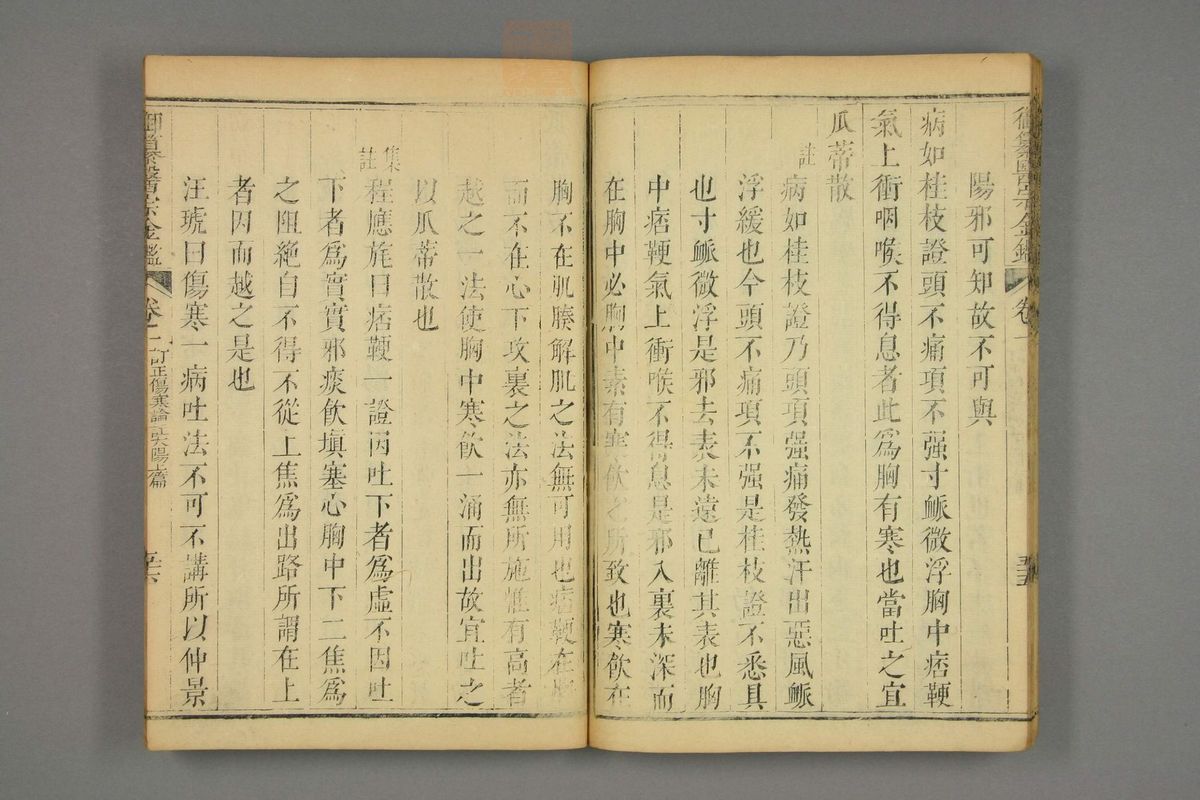 陽邪可知故不可與
病如桂枝證頭不痛項不强寸脈微浮胸中痞鞕
氣上衝咽喉不得息者此爲胸有寒也當吐之宜
瓜蒂散
註
病如桂枝證乃頭項强痛發熱汗出惡風脈
浮緩也今頭不痛項不强是桂枝證不悉具
也寸脈微浮是邪去表未遠已離其表也胸
中痞鞕氣上衝喉不得息是邪入裏未深而
在胸中必胸中素有寒飲之所致也寒飲在
胸不在肌腠解肌之法無可用也痞鞕在
而不在心下攻裏之法亦無所施惟有高者
越之一法使胸中寒飲一涌而出故宜吐之
以瓜蒂散也
集註
程應旄曰痞鞕一證因吐下者爲虛不因吐
下者爲實實邪痰飲塡塞心胸中下二焦爲
之阻絶自不得不從上焦爲出路所謂在上
者因而越之是也
汪琥曰傷寒一病吐法不可不講所以仲景
御纂醫宗金鑑 卷一 訂正傷寒論註太陽上篇 五六